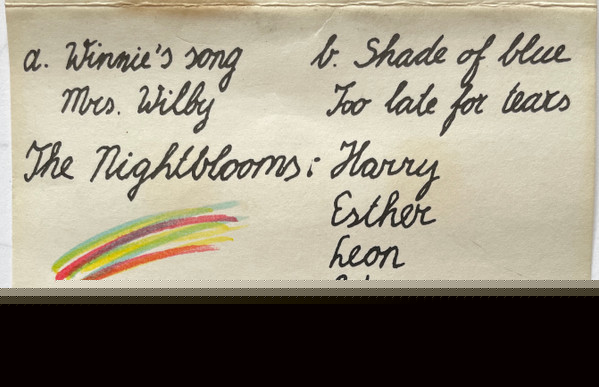 a. Winnie's song
Mrs. Wilby
b. Shade of blue
Too late for tears
The Nightblooms: Harry
Esther
Leon